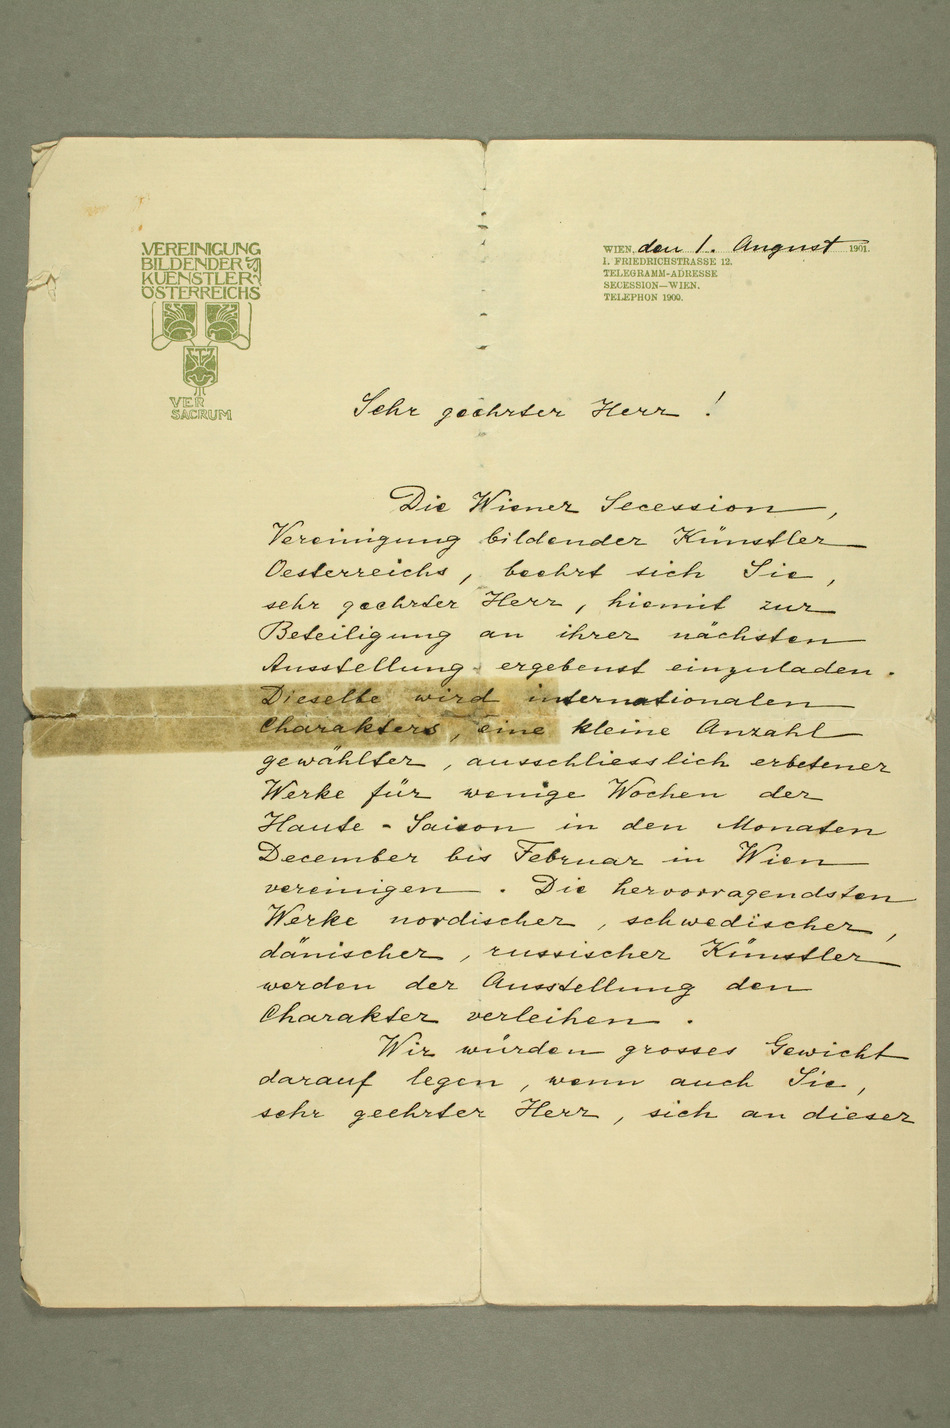 VEREINIGUNG
BILDENDER
KUENSTLER
ÖSTERREICHS
VER
SACRUM
WIEN, den 1. August 1901.
I. FRIEDRICHSTRASSE 12.
TELEGRAMM-ADRESSE
SECESSION—WIEN.
TELEPHON 1900.
Sehr geehrter Herr !
Die Wiener Secession,
Vereinigung bildender Künstler
Oesterreichs, beehrt sich Sie,
sehr geehrter Herr, hiemit zur
Beteiligung an ihrer nächsten
Ausstellung ergebenst einzuladen.
Dieselbe wird internationalen
Charakters, eine kleine Anzahl
gewählter, ausschliesslich erbetener
Werke für wenige Wochen der
Haute-Saison in den Monaten
December bis Februar in Wien
vereinigen. Die hervorragendsten
Werke nordischer, schwedischer,
dänischer, russischer Künstler
werden der Ausstellung den
Charakter verleihen.
Wir würden grosses Gewicht
darauf legen, wenn auch Sie,
sehr geehrter Herr, sich an dieser